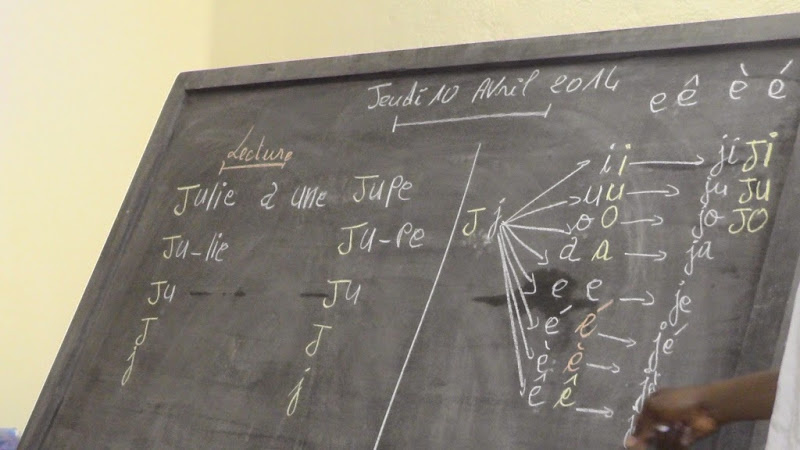 Jeudi 10 Avril 2014
e ê è é
Lecture
Julie a une Jupe
Ju-lie Ju-pe
Ju Ju
J J
j j
J j
i i → ji Ji
u u → ju Ju
o o → jo Jo
a a → ja
e e → je
é é → jé
è è →
ê ê →